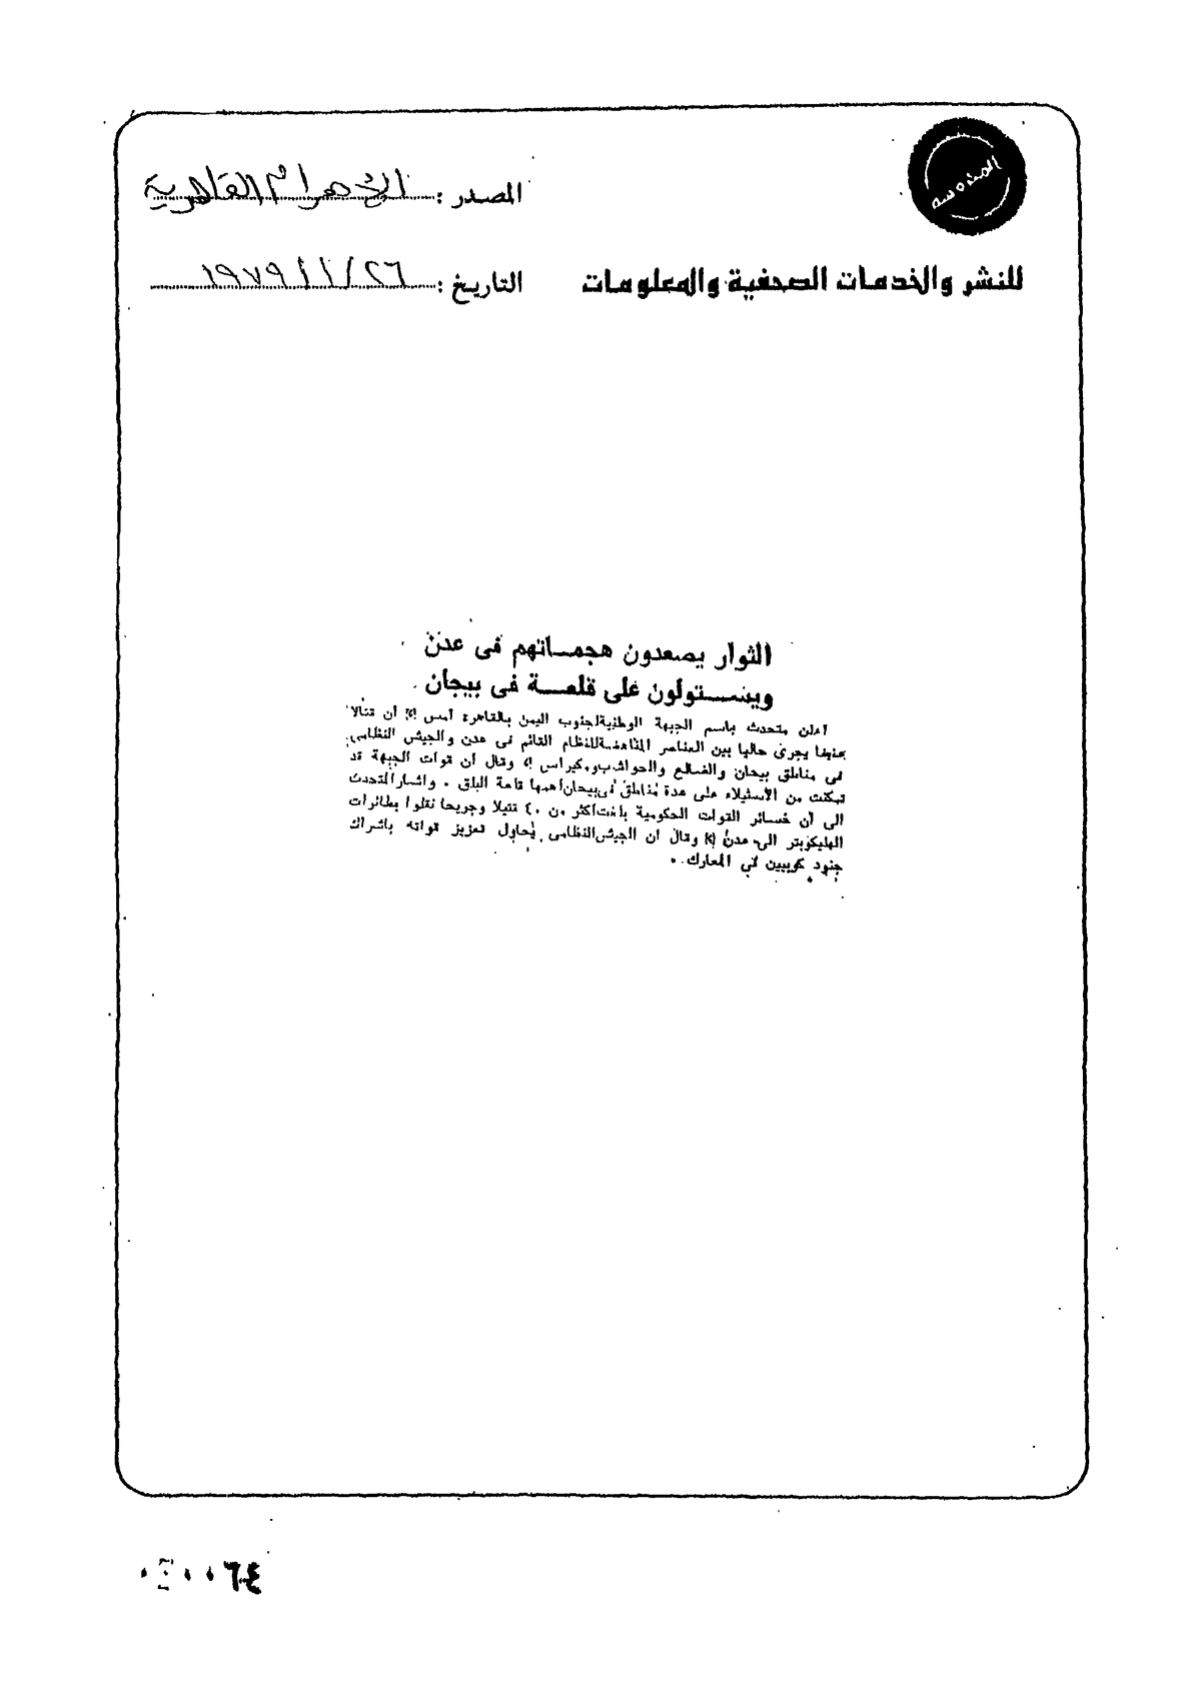 المصدر : الأهرام القاهرية
للنشر والخدمات الصحفية والمعلومات
التاريخ : ٢٦/١/١٩٧٩
الثوار يصعدون هجمـــاتهم فى عدن
ويستولون على قلعـــة فى بيجان
أعلن متحدث باسم الجبهة الوطنية لجنوب اليمن بالقاهرة أمس أن قتالا
عنيفا يجرى حاليا بين العناصر المناهضة للنظام القائم فى عدن والجيش النظامى
فى مناطق بيحان والضالع والحواشب ومكيراس وقال أن قوات الجبهة قد
تمكنت من الأستيلاء على عدة مناطق فى بيحان أهمها قلعة البلق . واشار المتحدث
الى أن خسائر القوات الحكومية بلغت أكثر من ٤٠ قتيلا وجريحا نقلوا بطائرات
الهليكوبتر الى عدن وقال ان الجيش النظامى يحاول تعزيز قواته باشراك
جنود كوبيين في المعارك .